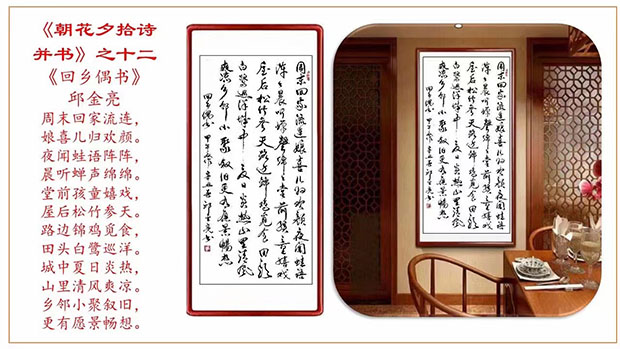 《朝花夕拾诗
并书》之十二
《回乡偶书》
邱金亮
周末回家流连，
娘喜儿归欢颜。
夜闻蛙语阵阵，
晨听蝉声绵绵。
堂前孩童嬉戏，
屋后松竹参天。
路边锦鸡觅食，
田头白鹭巡洋。
城中夏日炎热，
山里清风爽凉。
乡邻小聚叙旧，
更有愿景畅想。
周末回家流连娘喜儿归欢颜夜闻蛙语
阵阵晨听蝉声绵绵堂前孩童嬉戏
屋后松竹参天路边锦鸡觅食田头
白鹭巡洋城中夏日炎热山里清风
爽凉乡邻小聚叙旧更有愿景畅想
周末回家流连娘喜儿归欢颜夜闻蛙语
阵阵晨听蝉声绵绵堂前孩童嬉戏
屋后松竹参天路边锦鸡觅食田头
白鹭巡洋城中夏日炎热山里清风
爽凉乡邻小聚叙旧更有愿景畅想